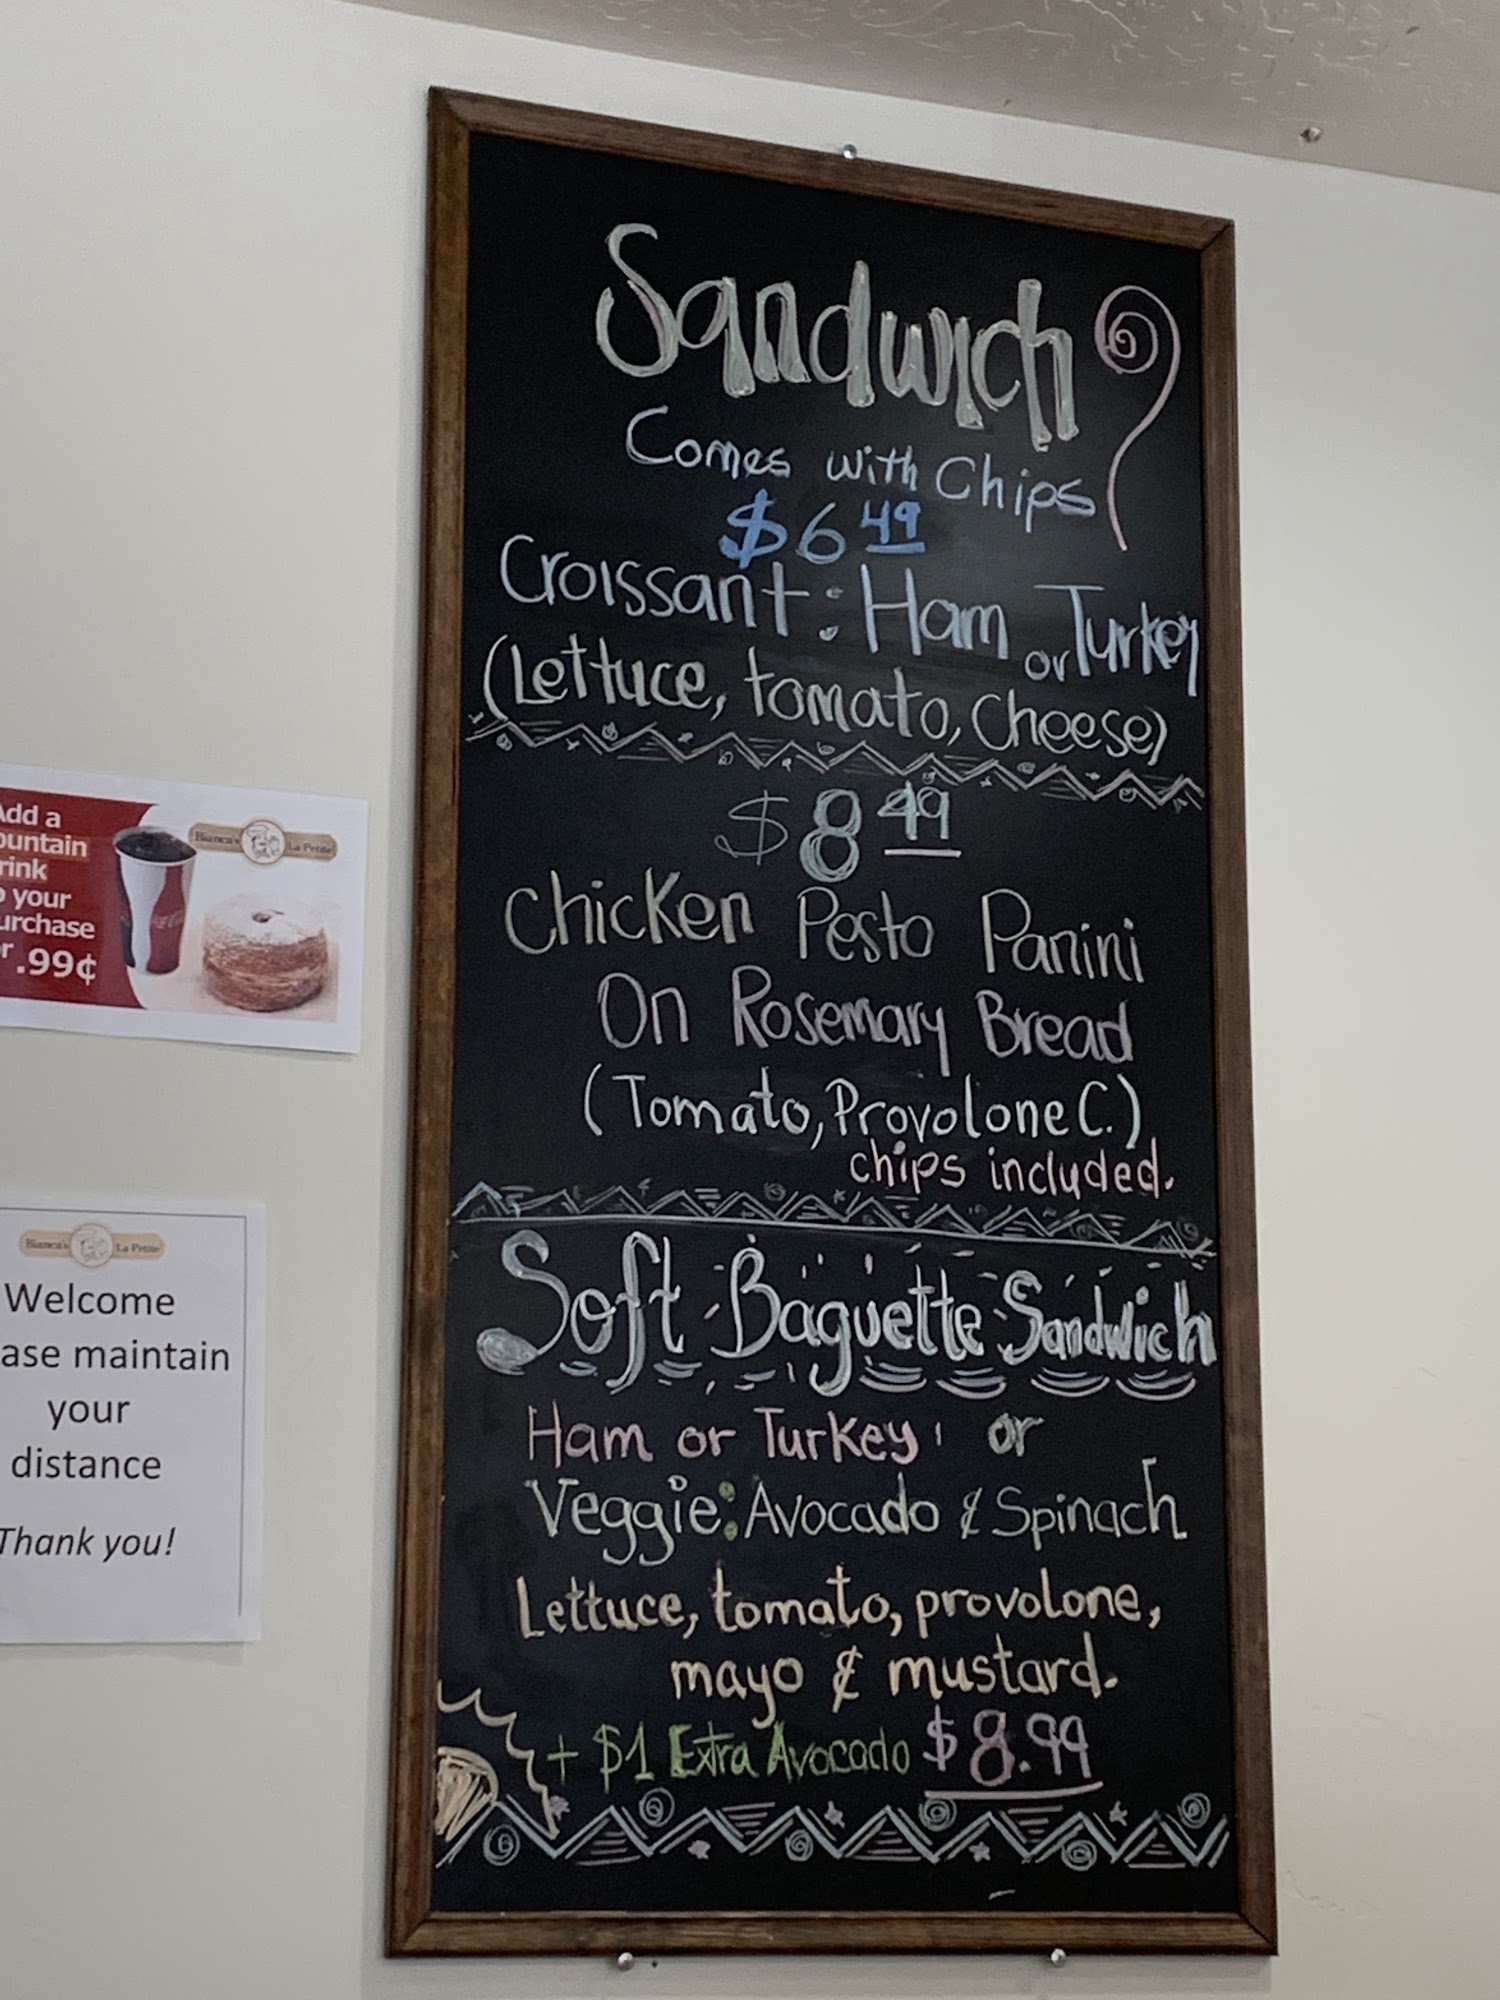 Sandwich
Comes with Chips
$6 49
Croissant: Ham or Turkey
(Lettuce, tomato, Cheese)
$8 49
Chicken Pesto Panini
On Rosemary Bread
(Tomato, Provolone C.)
chips included.
Soft Baguette Sandwich
Ham or Turkey or
Veggie: Avocado & Spinach
Lettuce, tomato, provolone,
mayo & mustard.
+ $1 Extra Avocado $8.99
dd a
ountain
rink
your
urchase
r .99¢
Bianca's La Petite
Bianca's La Petite
Welcome
ase maintain
your
distance
Thank you!